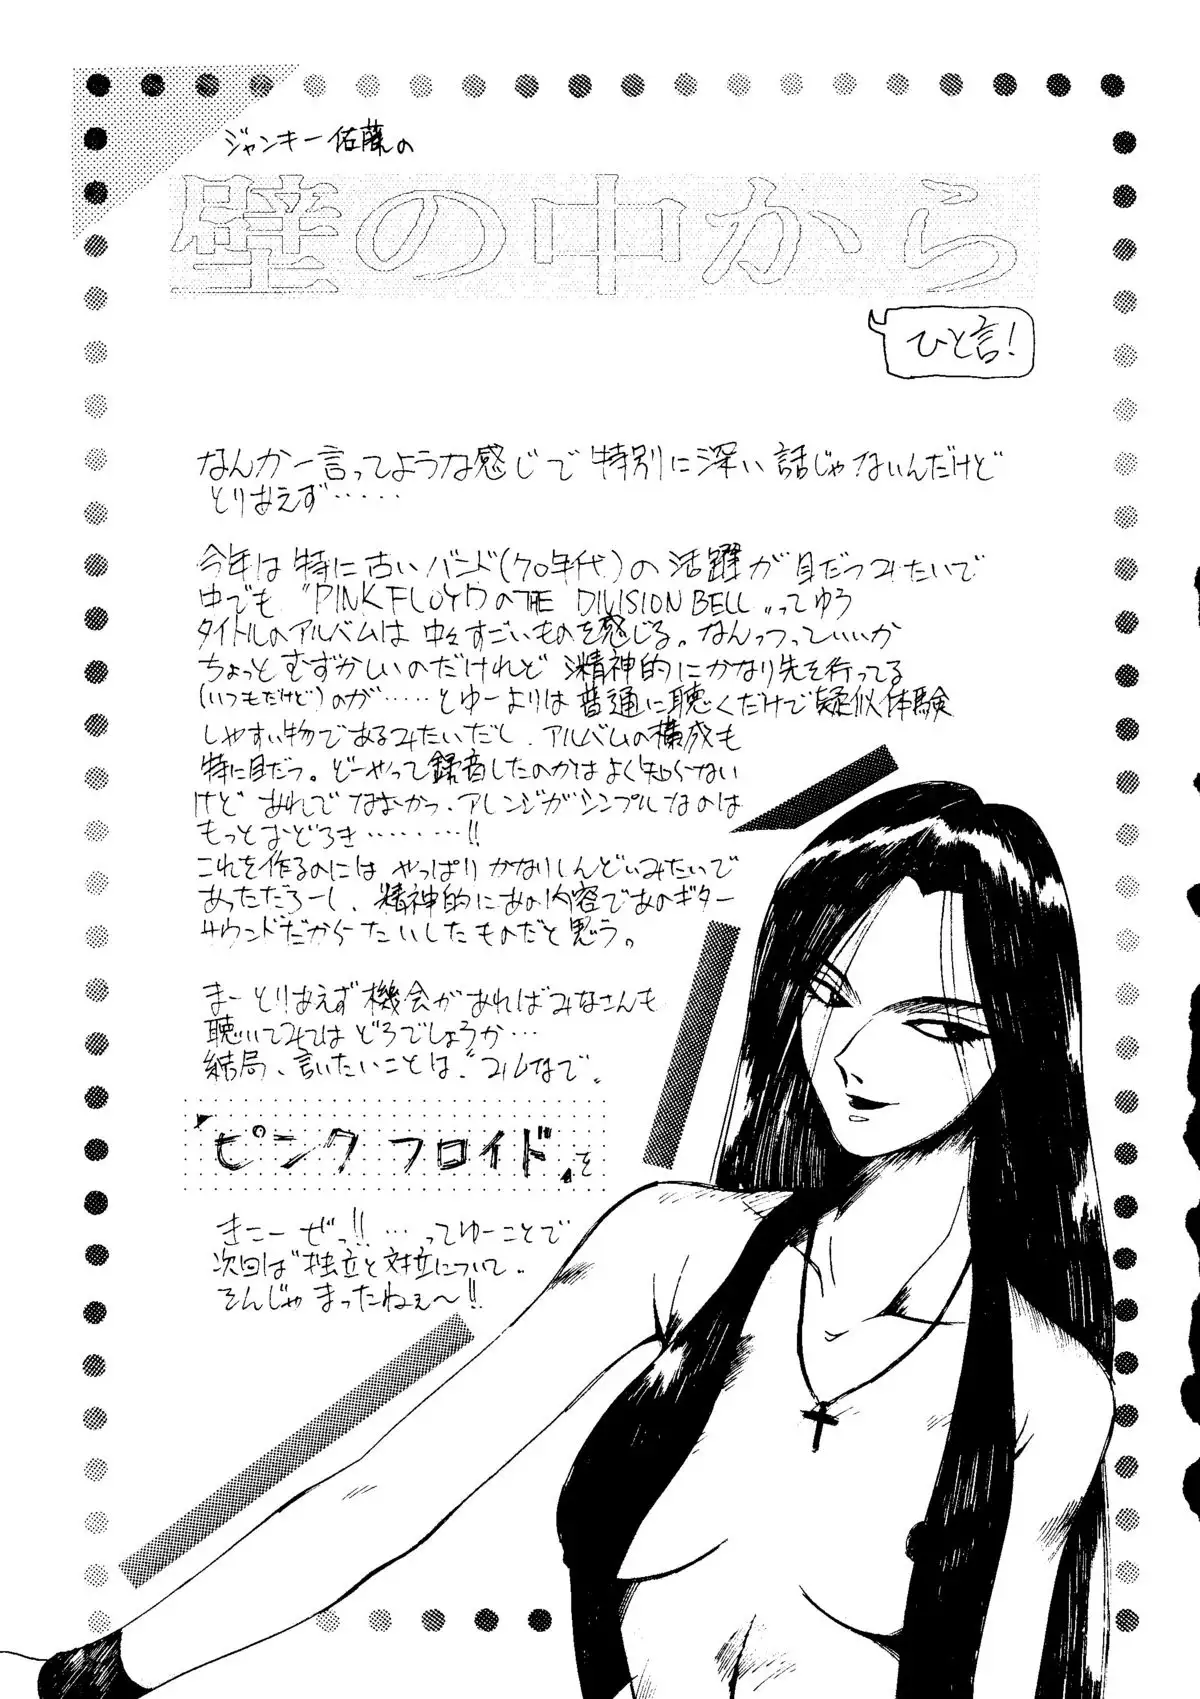 ジャンキー佐藤の
壁の中から
ひと言!
なんか一言ってような感じで特別に深い話じゃないんだけど
とりあえず・・・・・
今年は特に古いバンド(70年代)の活躍が目だつみたいで
中でも "PINK FLOYDのTHE DIVISION BELL"ってゆう
タイトルのアルバムは中々すごいものを感じる。なんつっていいか
ちょっとむずかしいのだけれど 精神的にかなり先を行ってる
(いつもだけど)のが・・・・・とゆーよりは普通に聴くだけで疑似体験
しやすい物であるみたいだし、アルバムの構成も
特に目だつ。どーやって録音したのかはよく知らない
けど あれでなおかつ、アレンジがシンプルなのは
もっとおどろき・・・・・・・・!!
これを作るのには やっぱりかなりしんどいみたいで
あっただろーし、精神的にあの内容であのギター
サウンドだからたいしたものだと思う。
まーとりあえず機会があればみなさんも
聴いてみてはどうでしょうか・・・
結局、言いたいことは"みんなで"
『ピンク フロイド』を
きこーぜっ!!・・・ってゆーことで
次回は"独立と対立について"
そんじゃまったねぇ〜!!